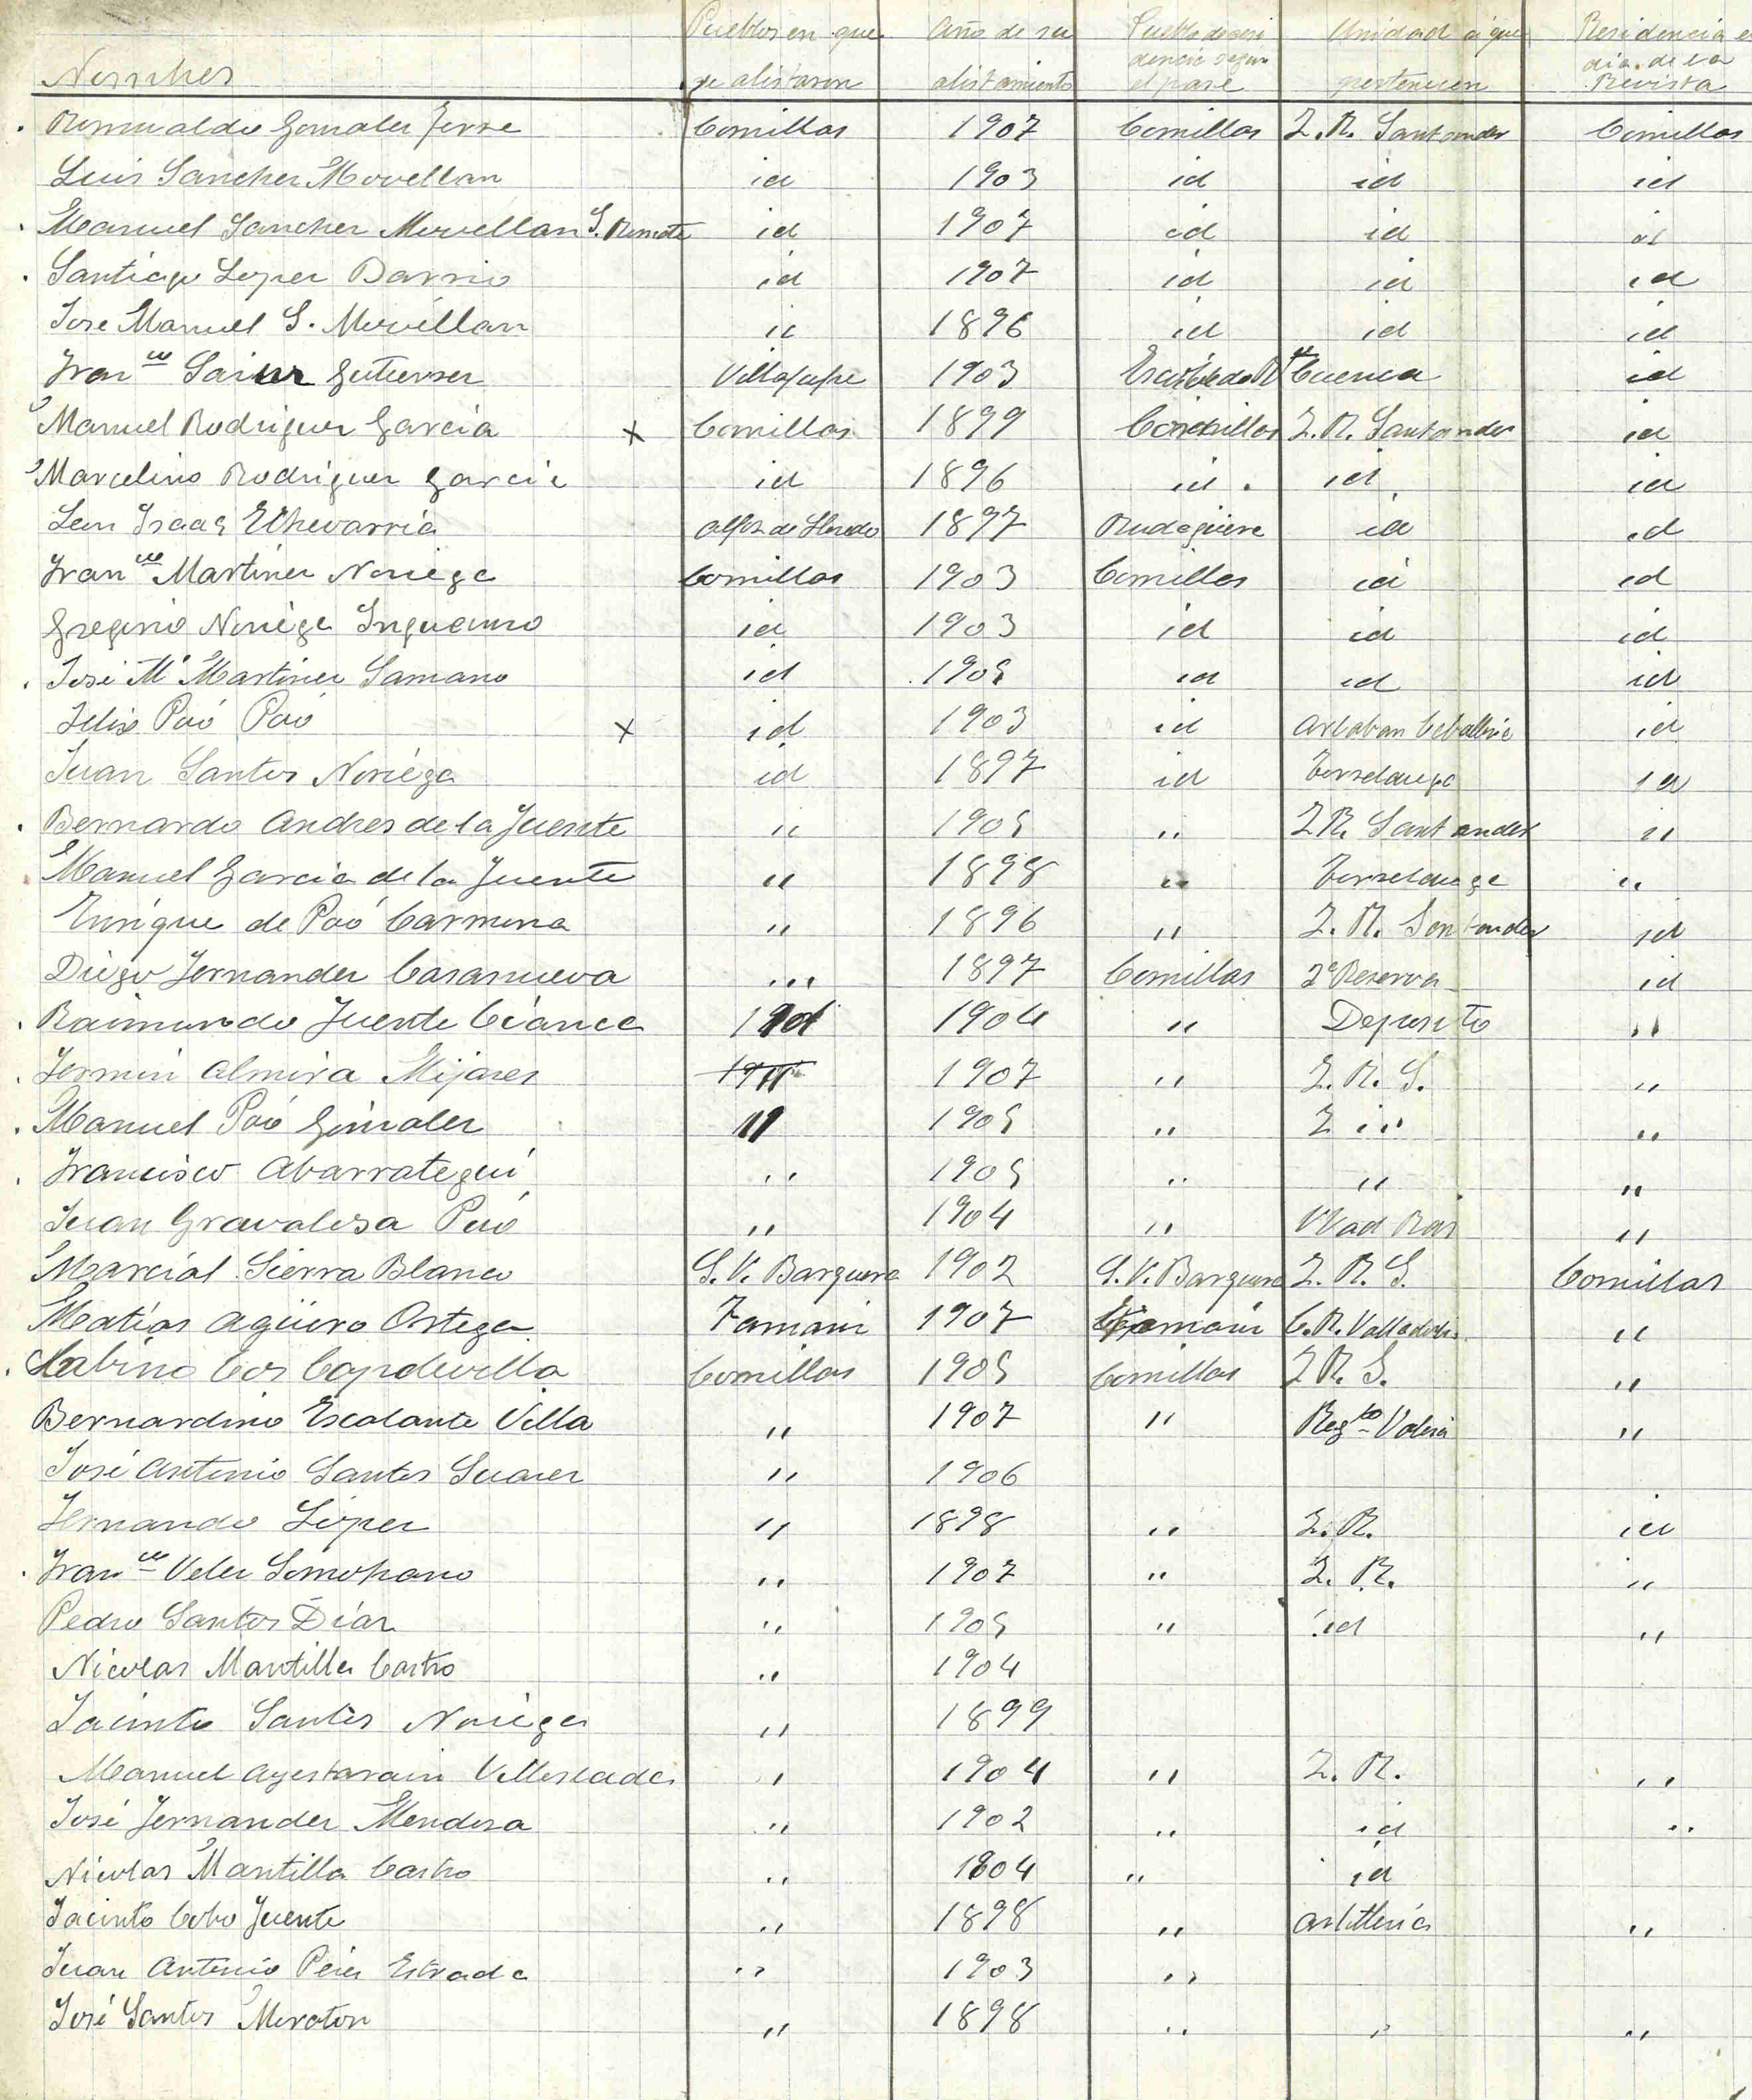 Nombres Pueblos en que se alistaron Año de su alistamiento Pueblo de residencia según el pase Unidad á que pertenecen Residencia el dia de la Revista
Romualdo Gonzalez Ferre Comillas 1907 Comillas Z. R. Santander Comillas
Luis Sanchez Movellan id 1903 id id id
Manuel Sanchez Movellan S. id 1907 id id id
Santiago Lopez Barrio id 1907 id id id
Jose Manuel S. Movellan id 1896 id id id
Franco Sainz Gutierrez Villafufre 1903 Cuenca id
Manuel Rodriguez Garcia x Comillas 1899 Comillas Z. R. Santander id
Marcelino Rodriguez Garcia id 1896 id id id
Leon Isaac Echevarria Alfoz de Lloredo 1897 Rudagüera id id
Franco Martinez Noriega Comillas 1903 Comillas id id
Gregorio Noriega Inguanzo id 1903 id id id
José Mª Martinez Samano id 1905 id id id
Felix Poó Poó x id 1903 id Arlaban Caballeria id
Juan Santos Noriega id 1897 id id
Bernardo Andres de la Fuente " 1905 " Z R. Santander "
Manuel Garcia de la Fuente " 1898 " "
Enrique de Poó Carmona " 1896 " Z. R. Santander id
Diego Fernandez Casanueva " 1897 Comillas 2ª Reserva id
Raimundo Fuente Cianca 1904 " Deposito "
Fermin Almira Mijares 1907 " Z. R. S. "
Manuel Poó Gonzalez " 1905 " Z " "
Francisco Abarrategui " 1905 " " "
Juan Gravalosa Poó " 1904 " Wad Ras "
Marcial Sierra Blanco S. V. Barquera 1902 S. V. Barquera Z. R. S. Comillas
Matias Agüero Ortega 1907 C. R. Valladolid "
Sabino Cos Capdevilla Comillas 1905 Comillas Z R. S. "
Bernardino Escalante Villa " 1907 " Regto "
José Antonio Santos Suarez " 1906
Fernando López " 1898 " Z. R. id
Franco Velez Somohano " 1907 " Z. R. "
Pedro Santos Díaz " 1905 " id "
Nicolas Mantilla Castro " 1904
Jacinto Santos Noriega " 1899
Manuel Ayestarain " 1904 " Z. R. "
José Fernandez Mendoza " 1902 " id "
Nicolas Mantilla Castro " 1904 " id
Jacinto Cobo Fuente " 1898 " Artilleria "
Juan Antonio Pérez Estrada " 1903 "
José Santos Moroton " 1898 " " "